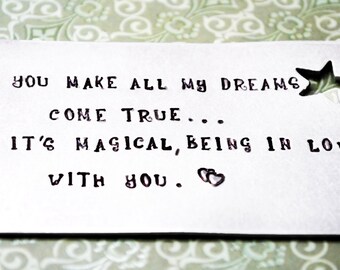 YOU MAKE ALL MY DREAMS
COME TRUE...
IT'S MAGICAL, BEING IN LO
WITH YOU.